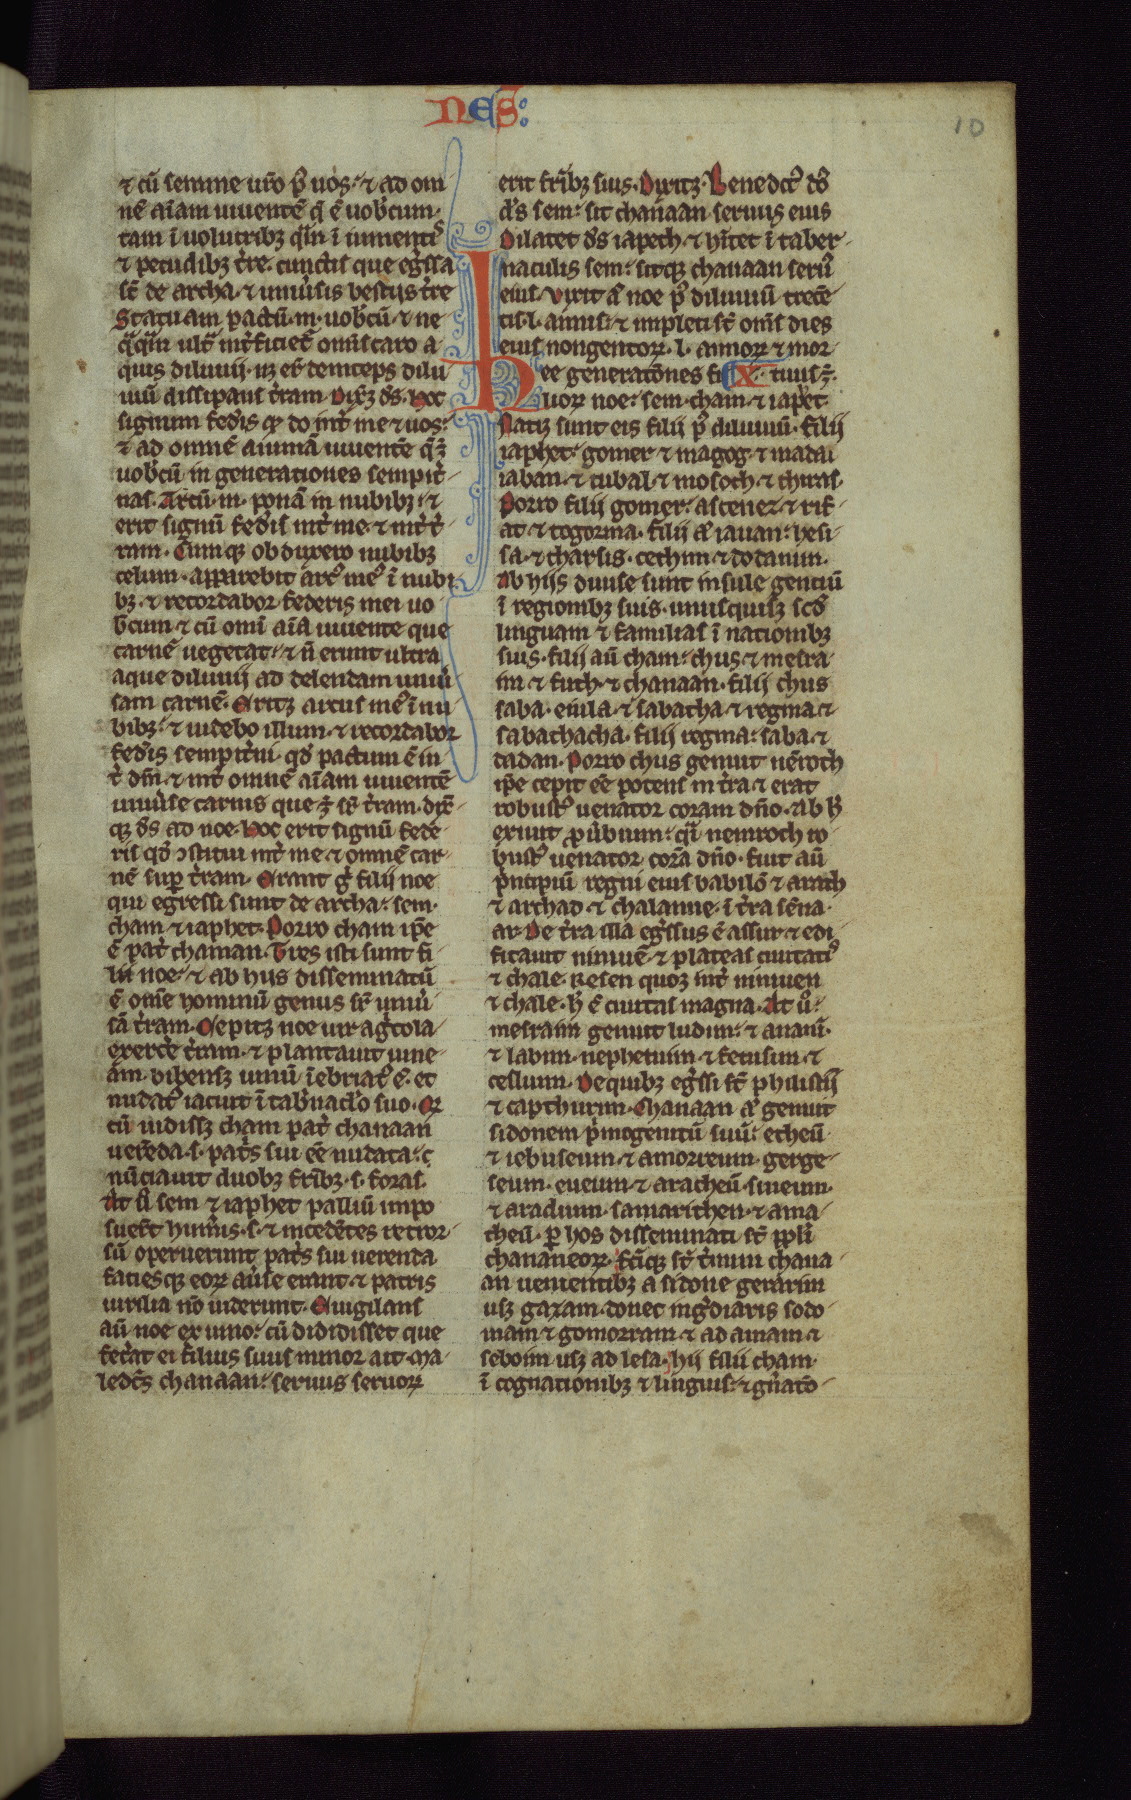 NES:
10
⁊ cū semine uro p⁹ uos: ⁊ ad om
nē aīam uiuentē q̄ ē uobcum
tam ī uolucribꝫ qm̄ ī iumentis
⁊ pecudibꝫ tr̄e. cunctis que eg̃ssa
st̄ de archa. ⁊ uniu̾sis bestijs tr̄e
Statuam pactū. m. uob̄cū. ⁊ ne
ult̾ int̾ficiet᷑ omīs caro a
quis diluuij. nꝫ er̄ deinceps dilu
uiū dissipans tr̄am. Dix̄ꝫ ds̄. Hoc
signum fed̾is qd̾ do int̾ me ⁊ uos:
⁊ ad omnē animā uiuentē q̄ ꝫ
uob̄cū in generationes sempit̾
nas. Arcū. m. ponā in nubibꝫ. ⁊
erit signū fed̾is int̾ me. ⁊ int̾ t̾
ram. Cumqꝫ obduxero nubibꝫ
celum. apparebit arc⁹ me⁹ ī nubi
bꝫ. ⁊ recordabor federis mei uo
b̄cum ⁊ cū omī aīa uiuente que
carnē uegetat. ⁊ n̄ erunt ultra
aque diluuij ad delendam uniu̾
sam carnē. Eritꝫ arcus me⁹ ī nu
bibꝫ. ⁊ uidebo illum. ⁊ recordabor
fed̾is sempit̾ni. qd̾ pactum ē in
t̾ dm̄. ⁊ int̾ omnē aīam uiuentē
uniu̾se carnis que ꝫ s̄r tr̄am. dix̄
qꝫ ds̄ ad noe. Hoc erit signū fede
ris qd̾ ɔstitui int̾ me. ⁊ omnē car
nē sup̄ tr̄am. Erant g̾ filij noe
qui egressi sunt de archa: sem.
cham ⁊ iaphet. Porro cham ip̄e
ē pat̾ chanaan. Tres isti sunt fi
lii noe. ⁊ ab hiis disseminatū
ē om̄e hominū genus s̄r uniu̾
sā tr̄am. Cepitꝫ noe uir ag̾cola
exerc̄e tr̄am. ⁊ plantauit uine
am. bibensꝫ uinū īebriat⁹ ē. et
nudat⁹ iacuit ī tab̾nac̄lo suo. Qꝫ
cū uidissꝫ cham pat̾ chanaan
uerēda. s. pat̾s sui ēe nudata:
nūciauit duobꝫ fr̄ibꝫ. s. foras.
At ū sem ⁊ iaphet palliū inpo
suer̄t humīs. s. ⁊ incedētes retror
sū operuerunt pat̾s sui uerenda
faciesqꝫ eoꝝ au̾se erant. ⁊ patris
uirilia nō uiderunt. Euigilans
aū noe ex uino: cū dididisset que
fec̾at ei filius suus minor ait. Ma
ledc̄s chanaan: seruus seruoꝝ
erit fr̄ibꝫ suis. Dixitꝫ. Benedct⁹ dn̄s
ds̄ sem: sit chanaan seruus eius
Dilatet ds̄ iapech. ⁊ hītet ī taber
naculis sem: sitqꝫ chanaan seru⁹
eius. Vixit aū noe p⁹ diluuiū trecē
tis. l. annis: ⁊ impleti st̄ om̄s dies
eius nongentoꝝ. l. annoꝝ ⁊ mor
Hee generatōnes fi X. tuus ꝫ.
lioꝝ noe: sem. cham. ⁊ iaphet
Natiꝫ sunt eis filii p⁹ diluuiū. filij
iaphet: gomer ⁊ magog. ⁊ madai
iaban. ⁊ tubal. ⁊ mosoch. ⁊ thiras.
Porro filij gomer: ascenez. ⁊ rif
at ⁊ togorma. filij aū iauan: heli
sa. ⁊ tharsis. cethim ⁊ dodanim.
Ab hijs diuise sunt insule gentiū
ī regionibꝫ suis. unusquisꝫ scd̾
linguam ⁊ familias ī nationibꝫ
suis. filij aū cham: chus ⁊ mesra
im ⁊ futh. ⁊ chanaan. filij chus
saba. euila. ⁊ sabatha. ⁊ regma ⁊
sabathacha. filij regma: saba. ⁊
dadan. Porro chus genuit nēroth
ip̄e cepit ēe potens in tr̄a ⁊ erat
robust⁹ uenator coram dn̄o. Ab h̾
exiuit pro̾bium: qi̾ nemroch ro
bust⁹ uenator corā dn̄o. fuit aū
p̾ncipiū regni eius babilō ⁊ arach
⁊ archad. ⁊ chalanne. ī tr̄a sēna
ar. De tr̄a illa eg̾ssus ē assur ⁊ edi
ficauit niniuē ⁊ plateas ciuitat⁹
⁊ chale. Resen quoꝫ int̾ niniuen
⁊ chale. h̾ ē ciuitas magna. At u̾:
mesraim genuit ludim: ⁊ anaim.
⁊ labim. nephetuim. ⁊ fetusim. ⁊
cesluim. De quibꝫ eg̾ssi st̄ philistij̄
⁊ capthurim. Chanaan aū genuit
sidonem p̾mogenitū suū: etheū
⁊ iebuseum. ⁊ amorreum. gerge
seum. eueum. ⁊ aracheū. sineum.
⁊ aradium. samarithen. ⁊ ama
theū. p̄ hos disseminati st̄ ppl̄i
chananeoꝝ. fc̄iqꝫ st̄ t̾mini chana
an uenientibꝫ a sidone gerarim
usꝫ gazam. donec ing̾diaris sodo
mam ⁊ gomorram. ⁊ adamam ⁊
seboim usꝫ ad lesa. hij filii cham.
ī cognationibꝫ ⁊ linguis: ⁊ gn̾atō